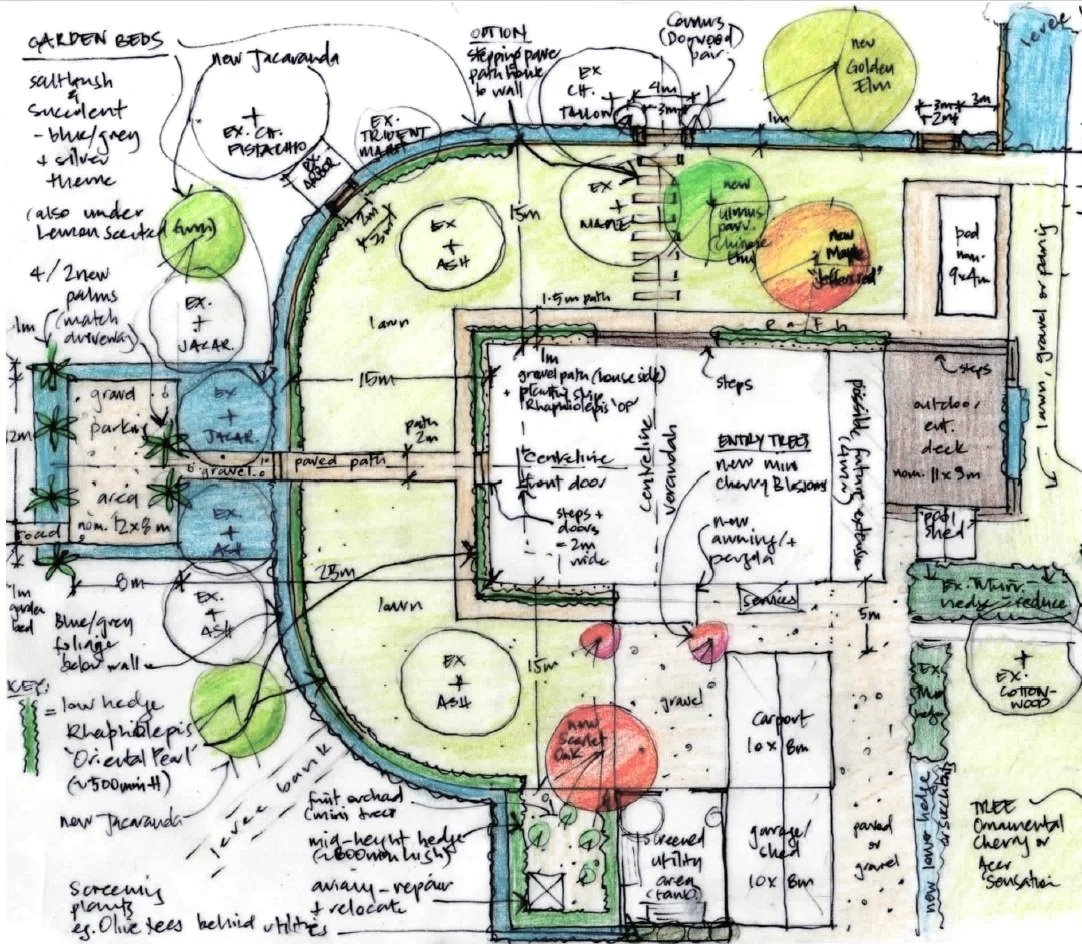 GARDEN BEDS
saltbush
&
succulent
- blue/grey
+ silver
theme
(also under
Lemon scented
(gum)
4/2 new
palms
(match
driveway)
1m
new Jacaranda
+
EX. CH.
PISTACHIO
EX.
ARBOR
EX.
TRIDENT
MAPLE
OPTION
stepping paver
path house
to wall
EX
CH.
TALLOW
+
(Dogwood)
pair
4m
3m
1m
new
Golden
Elm
3m
3m
levee
2m
3m
EX
+
ASH
15m
EX
+
MAPLE
new
ulmus
parv.
Chinese
Elm
new
Maple
pad
nom.
9x4m
lawn, gravel or paving
EX.
+
JACAR.
lawn
1.5m path
path
steps
steps
1m
gravel path (house side)
+ planting strip
Rhaphiolepis 'OP'
15m
gravel
parking
area
nom. 12x8m
EX
+
JACAR.
gravel
paved path
path
2m
centreline
front door
steps +
doors
= 2m
wide
centreline
verandah
ENTRY TREES
new mini
Cherry Blossoms
new
awning/+
pergola
possible future extension
outdoor
ent.
deck
nom. 11x9m
pool
shed
road
EX.
+
ASH
8m
23m
1m
garden
bed
EX.
+
ASH
lawn
services
5m
hedge - reduce
Blue/grey
foliage
below wall
KEY:
= low hedge
Rhaphiolepis
'Oriental Pearl'
(~500mm H)
EX
+
ASH
15m
new
Scarlet
Oak
gravel
carport
10 x 8m
+
EX.
COTTON-
WOOD
new Jacaranda
levee bank
fruit orchard
(mini trees)
mid-height hedge
(~800mm high)
aviary - repair
+ relocate
Screening
plants
eg. Olive trees behind utilities
screened
utility
area
(tank)
garage/
shed
10x 8m
paved
or
gravel
new low hedge
or succulents
TREE
Ornamental
Cherry or
Acer
'Sensation'